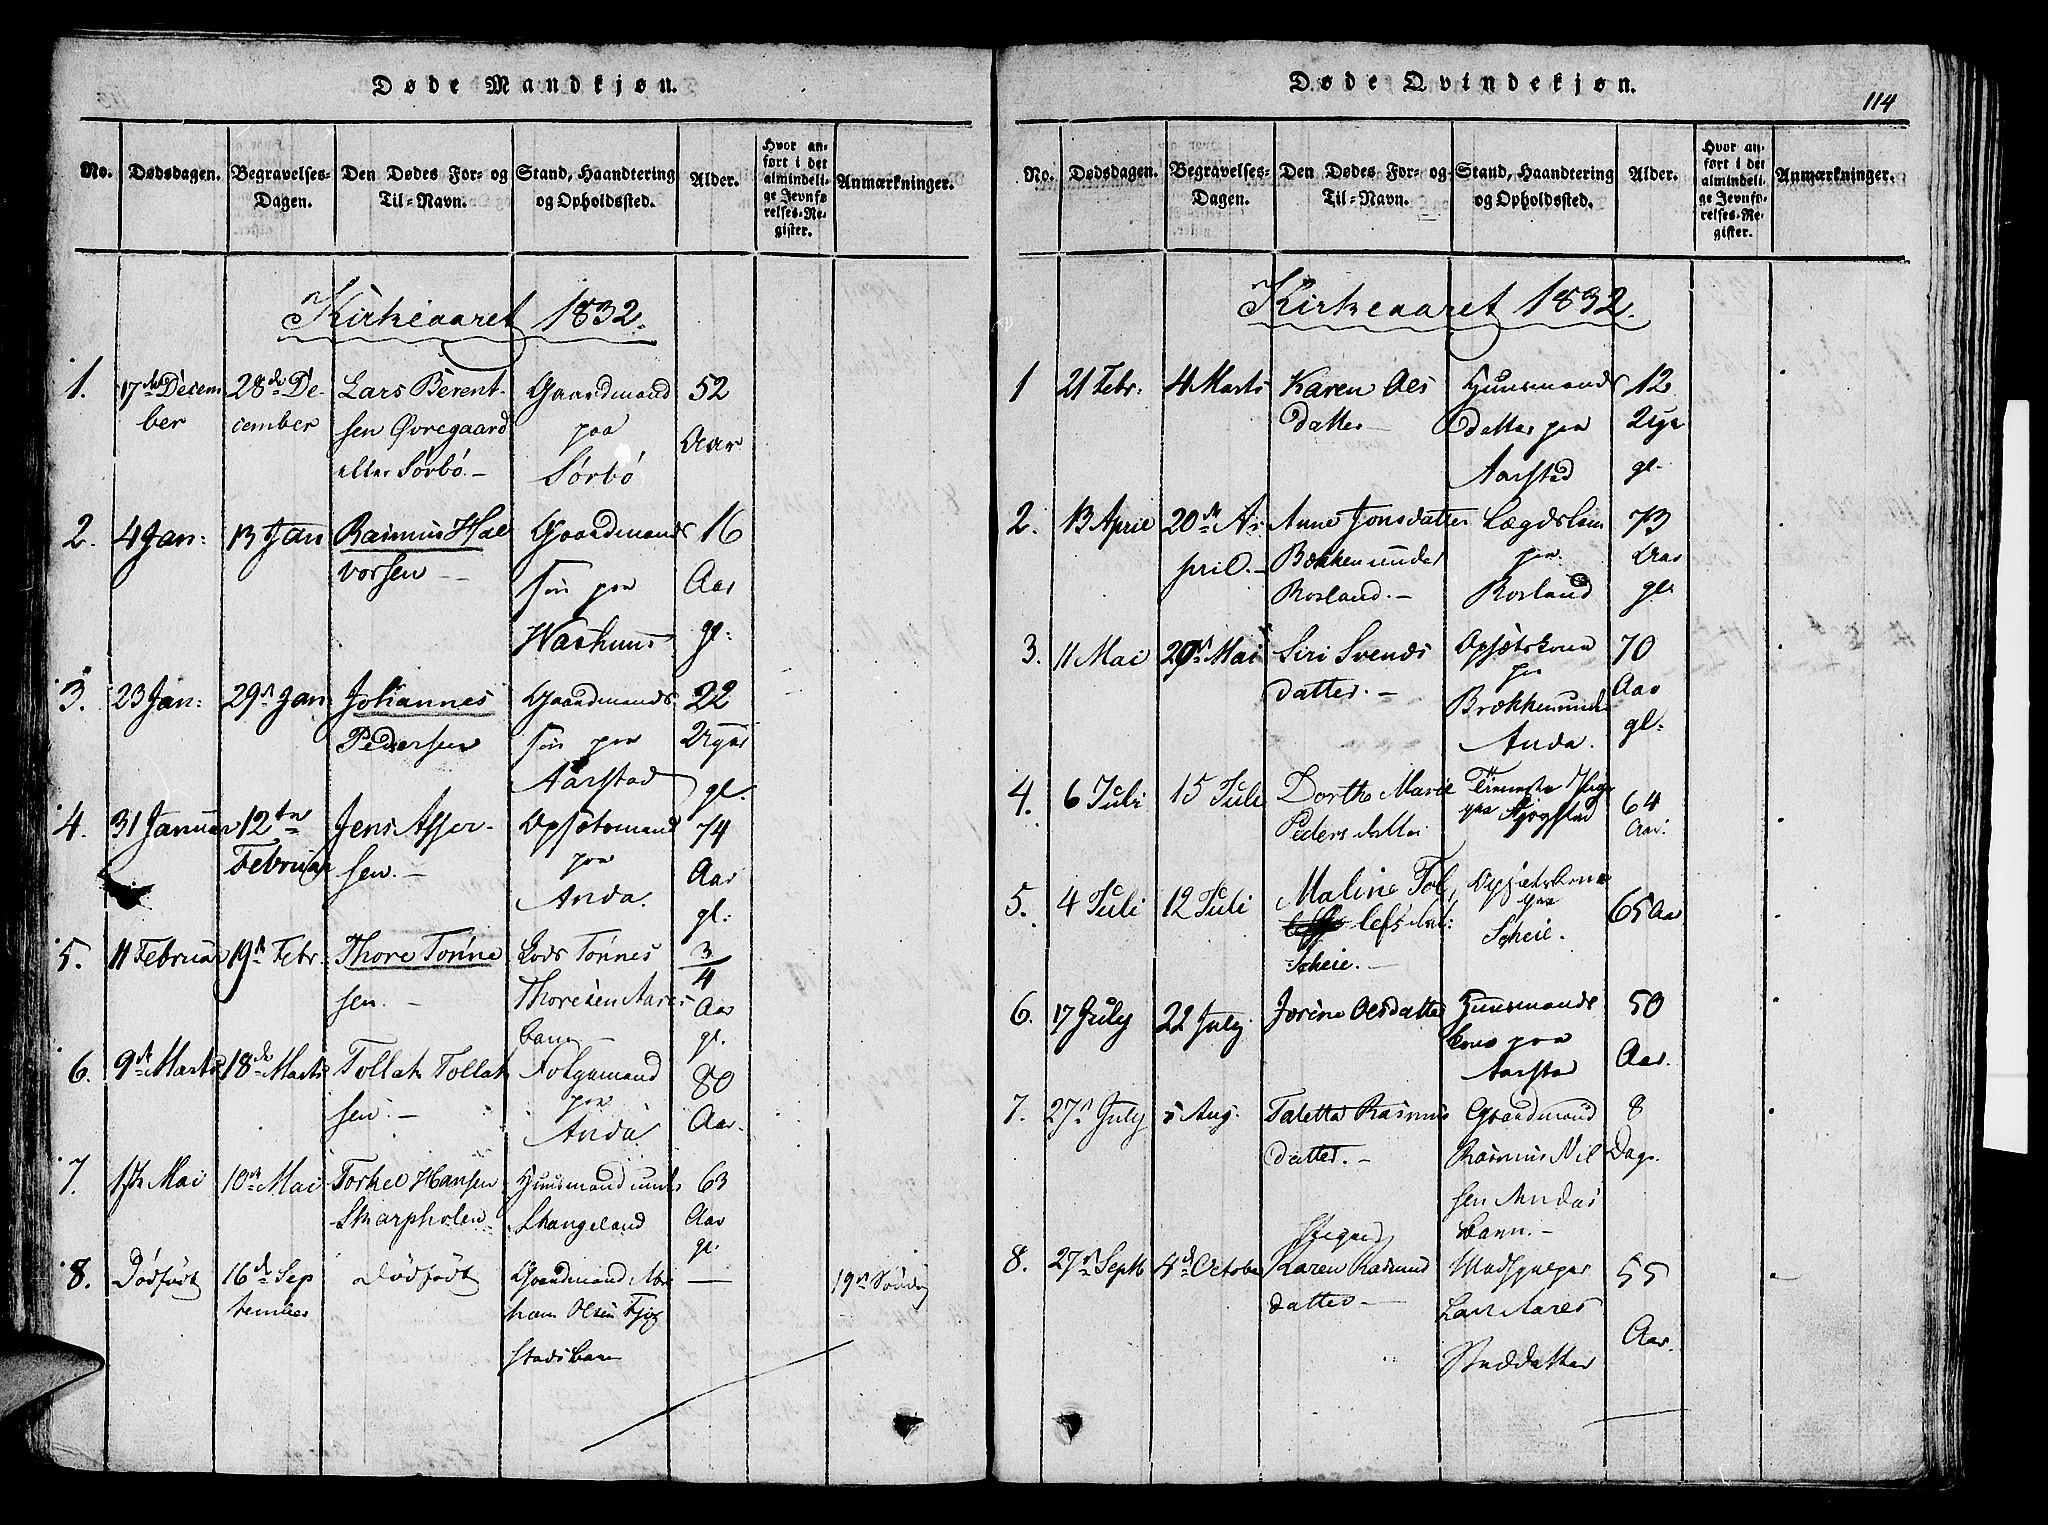 Døde Mandkjøn.
No.
Dødsdagen.
Begravelses-
Dagen.
Den Dødes For- og
Til-Navn.
Stand, Haandtering
og Opholdssted.
Alder.
Hvor an-
ført i det
almindeli-
ge Jevnfø-
relses-Re-
gister.
Anmærkninger.
Kirkeaaret 1832.
1.
17de Decem
ber
28de De-
cember
Lars Berent-
sen Øvregaard
eller Sørbö.-
Gaardmand
paa
Sørbö
52
Aar
2.
4 Jan:
13 Jan
Rasmus Hal
vorsen
Gaardmands
Søn paa
16
Aar
gl:
3.
23 Jan:
29de Jan
Johannes
Pedersen
Gaardmands
Søn paa
Aarstad
22
Uger
gl.
4.
31 Januar
12te
Februar
Jens Asser-
sen.-
Opsætsmand
paa
Anda.
74
Aar
gl:
5.
11 Februar
19de Febr.
Thore Tönne
sen.-
Lods Tönnes
Thoresen Aares
barn
3/4
Aar
gl.
6.
9de Marts
18de Marts
Tollak Tollak
sen.-
Folgemand
paa
Anda
80
Aar.
7.
Mai
10de Mai
Torkel Hansen
Skarpholen
Huusmand under
Skangeland
63
Aar
gl.
8.
Dödfödt
16de Sep
tember
Dödfödt
Gaardmand Abra
ham Olsen Fjog
stads barn
—
19de Söndag
Døde Qvindekjøn.
114
No.
Dødsdagen.
Begravelses-
Dagen.
Den Dødes For- og
Til-Navn.
Stand, Haandtering
og Opholdssted.
Alder.
Hvor an-
ført i det
almindeli-
ge Jevnfø-
relses-Re-
gister.
Anmærkninger.
Kirkeaaret 1832.
1
21 Febr:
4 Marts
Karen Ols
datter
Huusmands
datter paa
Aarstad
12
Uger
gl.
2.
13 April
20de A-
pril.-
Anne Jonsdatter
Bækken under
Rosland.-
Lægdslem
paa
Rosland
73
Aar
gl.
3.
11 Mai
20de Mai
Siri Svends
datter.-
Opsætskone
paa
Brækken under
Anda.
70
Aar
gl.
4.
6 Juli
15 Juli
Dorthe Marie
Peders datter
Tieneste Pige
paa Fjogstad
64
Aar.
5.
4 Juli
12 Juli
Maline Tol
lefsdat:
Scheie.-
Opsætskone
paa
Scheie.
65 Aar
6.
17 July
22 July
Jorine Olsdatter
Huusmands
kone paa
Aarstad
50
Aar.
7.
27de July
5 Aug.
Taletta Rasmus
datter.-
Gaardmand
Rasmus Niel
sen Andas
barn.-
8
Dage
8.
27de Septb
4de October
Karen Rasmus
datter
Lars Aares
Steddatter
55
Aar.